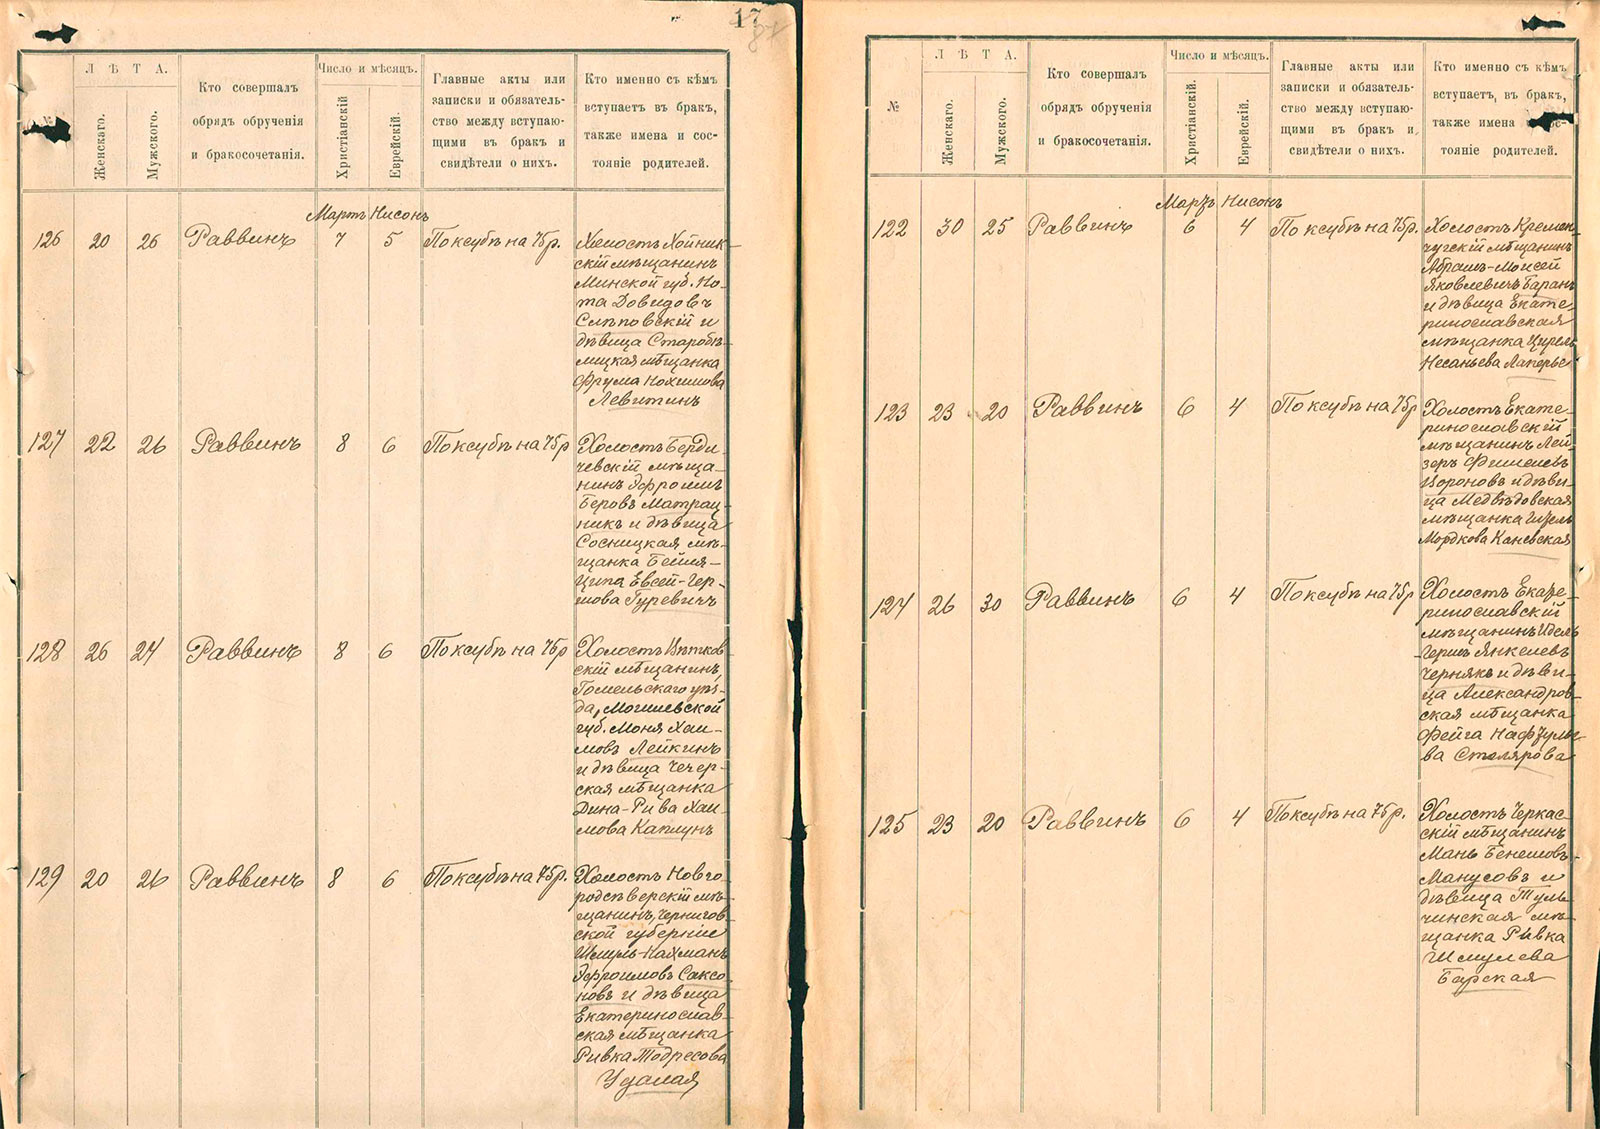 17
Л Ѣ Т А.
Число и мѣсяцъ.
№
Женскаго.
Мужского.
Кто совершалъ
обрядъ обрученія
и бракосочетанія.
Христіанскій
Еврейскій.
Главные акты или
записки и обязатель-
ство между вступаю-
щими въ бракъ и
свидѣтели о нихъ.
Кто именно съ кѣмъ
вступаетъ въ бракъ,
также имена и сос-
тояніе родителей.
Мартъ Нисонъ
126 20 26 Раввинъ 7 5 По ксубѣ на 75 р.
Холостъ Хойник-
скій мѣщанинъ
Минской губ. Но-
та Довидовъ
Слѣповскій и
дѣвица Старобѣ-
лицкая мѣщанка
Фрума Нохимова
Левитинъ
127 22 26 Раввинъ 8 6 По ксубѣ на 75 р
Холостъ Берди-
чевскій мѣща-
нинъ Эфроимъ
Беровъ Матрац-
никъ и дѣвица
Сосницкая мѣ-
щанка Бейля-
Ципа Евсей-Гер-
шова Гуревичъ
128 26 24 Раввинъ 8 6 По ксубѣ на 75 р
Холостъ Вѣтков-
скій мѣщанинъ,
Гомельскаго уѣз-
да, Могилевской
губ. Моня Хаи-
мовъ Лейкинъ
и дѣвица Чечер-
ская мѣщанка
Дина-Рива Хаи-
мова Каплунъ
129 20 26 Раввинъ 8 6 По ксубѣ на 75 р.
Холостъ Новго-
родсѣверскій мѣ-
щанинъ, Чернигов-
ской губерніи
Шмуль-Нахманъ
Эфроимовъ Саксо-
новъ и дѣвица
Екатеринослав-
ская мѣщанка
Ривка Тодресова
Удалая
Л Ѣ Т А.
Число и мѣсяцъ.
№
Женскаго.
Мужского.
Кто совершалъ
обрядъ обрученія
и бракосочетанія.
Христіанскій.
Еврейскій.
Главные акты или
записки и обязатель-
ство между вступаю-
щими въ бракъ и
свидѣтели о нихъ.
Кто именно съ кѣмъ
вступаетъ, въ бракъ,
также имена сос-
тояніе родителей.
Мартъ Нисонъ
122 30 25 Раввинъ 6 4 По ксубѣ на 75 р.
Холостъ Кремен-
чугскій мѣщанинъ
Абрамъ-Моисей
Яковлевичъ Баранъ
и дѣвица Екате-
ринославская
мѣщанка Цирель
Несаньева
123 23 20 Раввинъ 6 4 По ксубѣ на 75 р
Холостъ Екате-
ринославскій
мѣщанинъ Лей-
зеръ Фишелевъ
Вороновъ и дѣви-
ца Медвѣдовская
мѣщанка
Мордкова Каневская
124 26 30 Раввинъ 6 4 По ксубѣ на 75 р
Холостъ Екате-
ринославскій
мѣщанинъ Идель
Гершъ Янкелевъ
Чернякъ и дѣви-
ца Александров-
ская мѣщанка
Фейга Нафтулье-
ва Столярова
125 23 20 Раввинъ 6 4 По ксубѣ на 75 р.
Холостъ Черкас-
скій мѣщанинъ
Мань Бенешовъ
Манусовъ и
дѣвица Туль-
чинская мѣ-
щанка Ривка
Шмулева
Барская